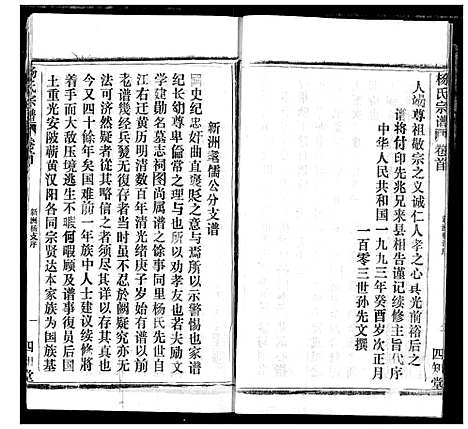 杨氏宗谱 卷首
人竭尊祖敬宗之义诚仁人孝之心具光前裕后之
谱将付印先兆兄来县相告谨记续修主旨代序
中华人民共和国一九九三年癸酉岁次正月
一百零三世孙先文撰
四知堂
新洲耄儒公分支谱
国史纪忠奸曲直褒贬之意与焉所以示警惕也家谱
纪长幼尊卑伦常之理与也所以劝孝友也若夫励文
学建勋名墓志祠图尚属谱之馀事同里杨氏先世自
江右迁黄历明清数百年清光绪庚子岁始有谱以前
老谱几经兵燹无复孑遗仅凭各分支草谱汇集成书
可决然疑者从其略信之者须尽其详以存其真也
今又四十馀年矣国难前一年族中人士建议续修将
着手而大敌压境逃生不暇何暇顾及谱事复员后国
土重光安陂蕲黄汉阳各同宗贤达本家族为国族基
杨氏宗谱 卷首
新洲杨支序
一
四知堂